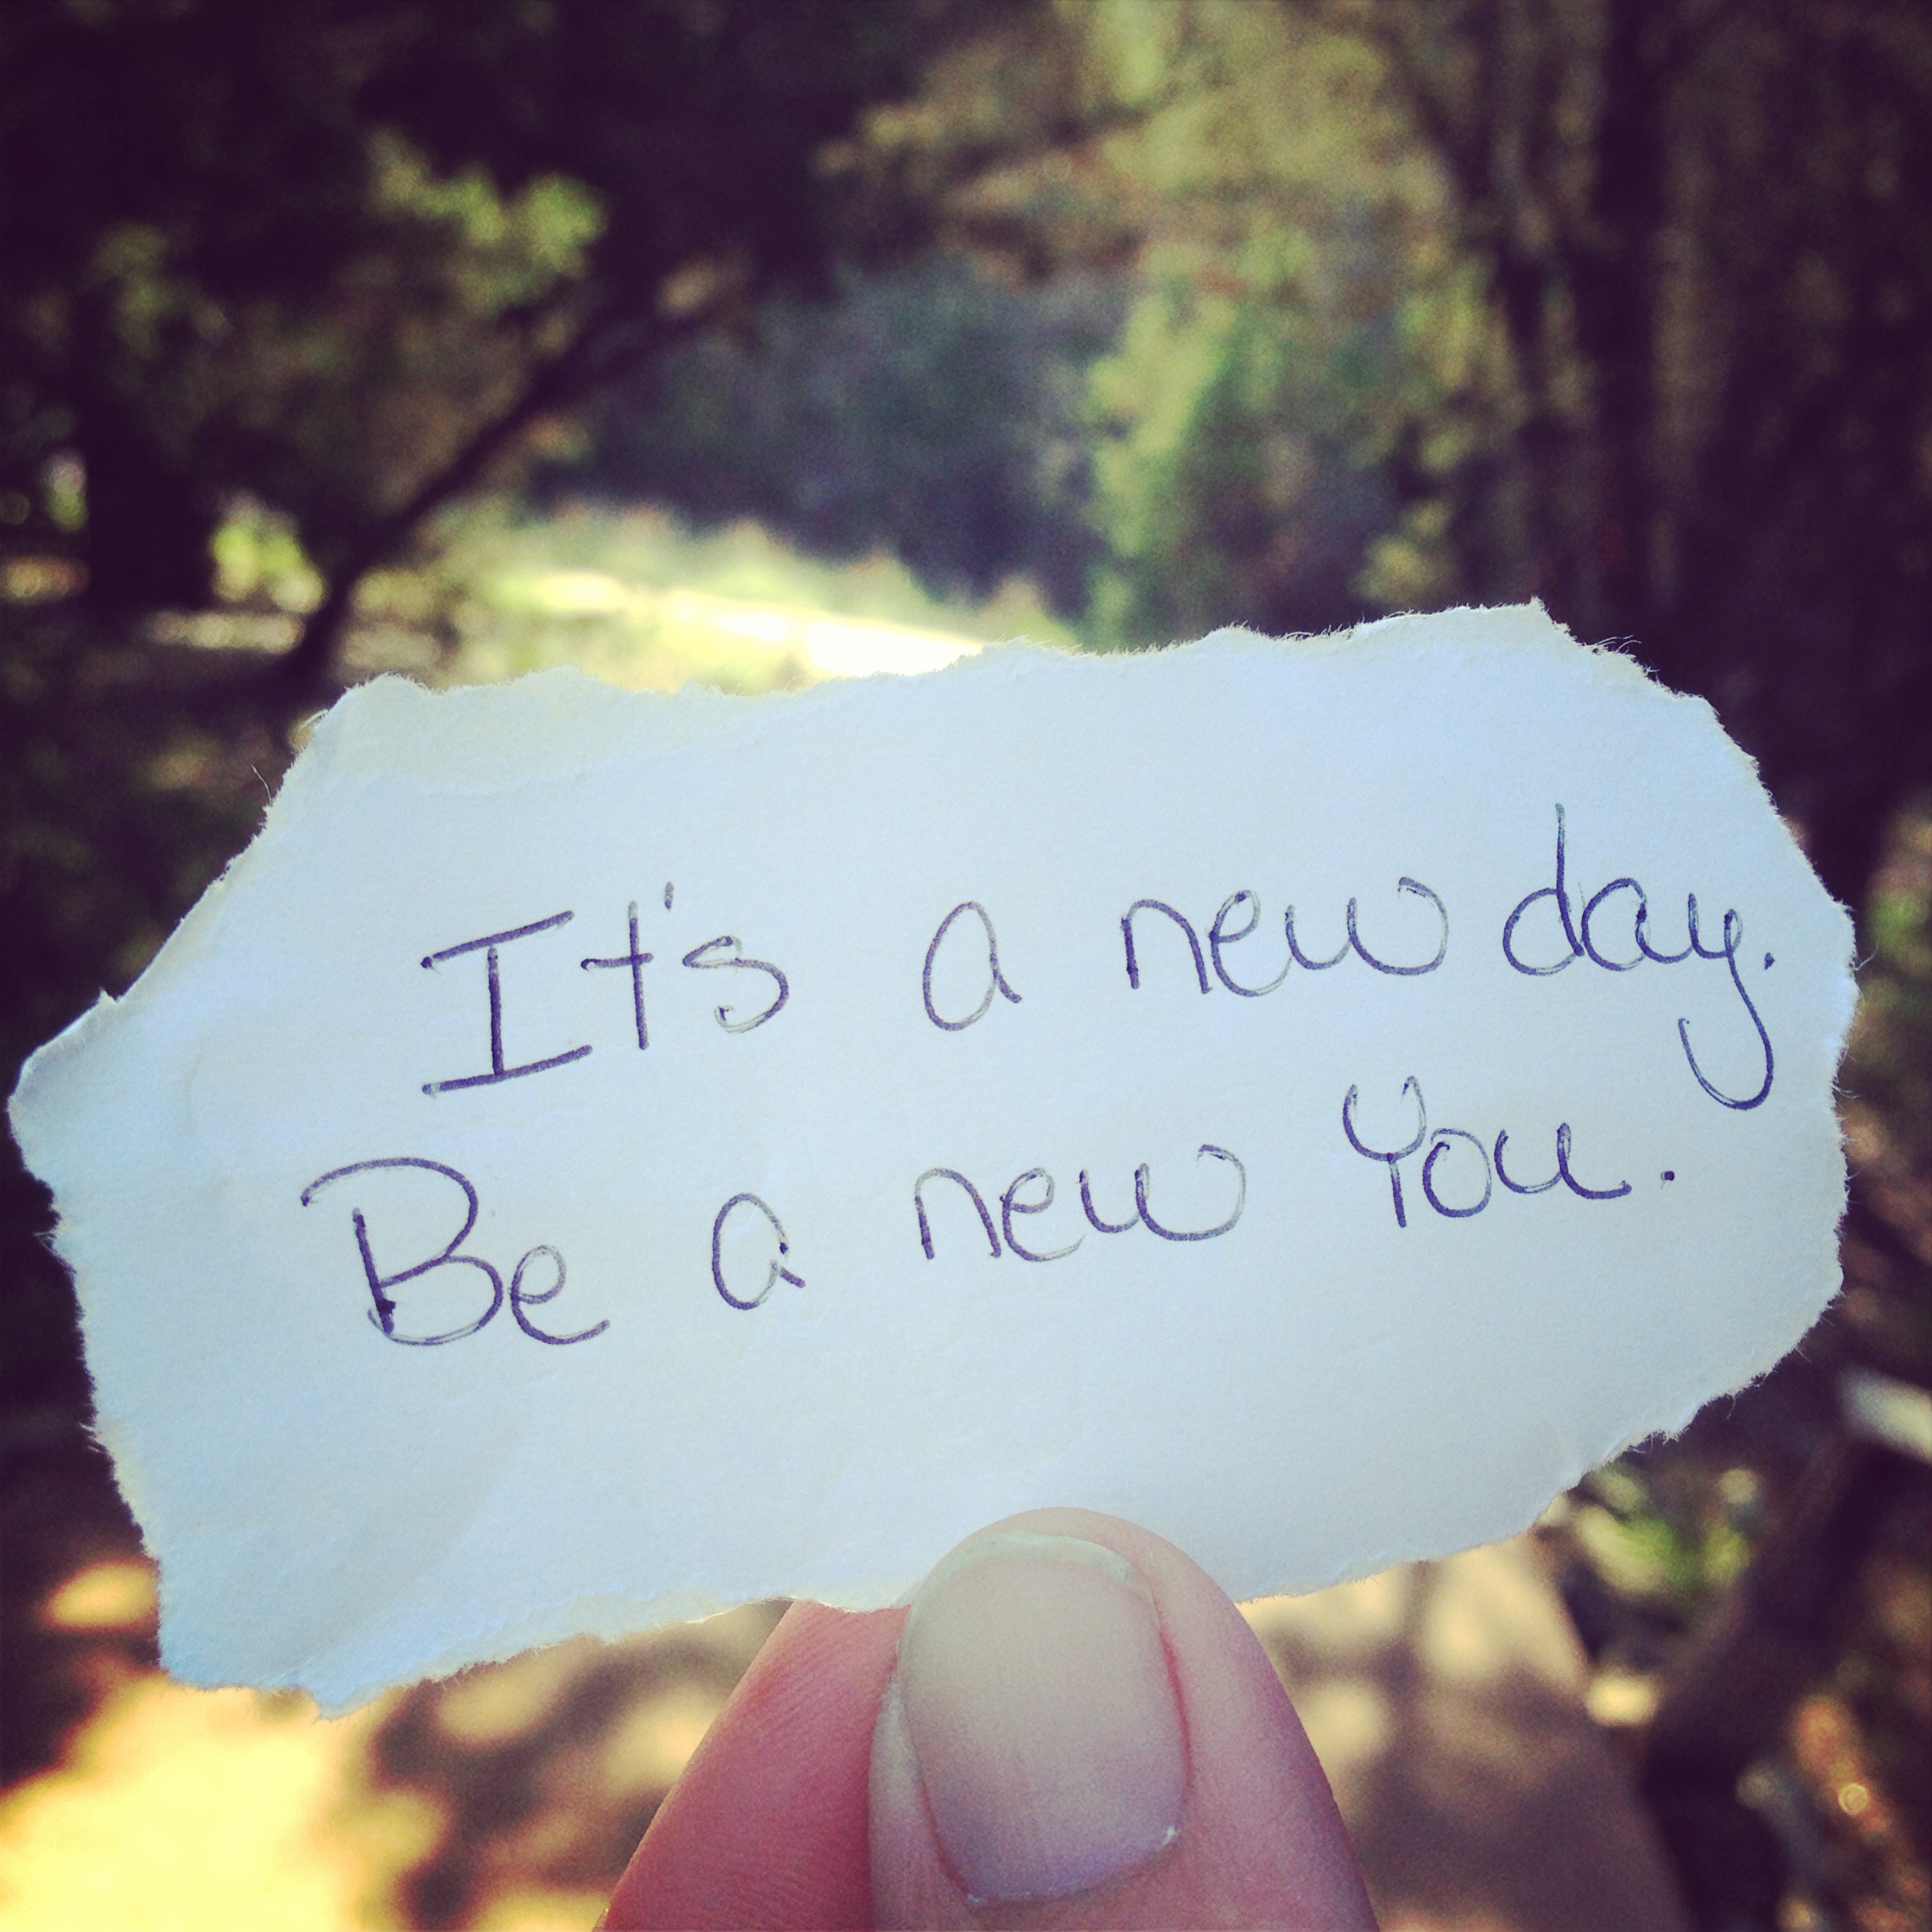 It's a new day.
Be a new You.